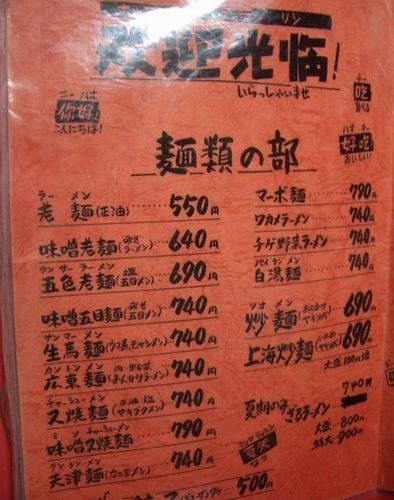 欢迎光临!
いらっしゃいませ
ニーハオ
你好!
こんにちは!
チー
吃
食べる
ハオ チー
好吃
おいしい!
麺類の部
ラーメン
老麺(正油) 550円
味噌老麺(みそラーメン) 640円
ウンサーラーメン
五色老麺(塩五目メン) 690円
味噌五目麺(みそ五目メン) 740円
サンマーメン
生馬麺(ウマ煮モヤシメン) 740円
カントンメン
広東麺(肉・野菜あんかけラーメン) 740円
チャーシューメン
叉焼麺(正油・塩ヤキブタメン) 740円
ミソチャーシューメン
味噌叉焼麺 790円
テンシンメン
天津麺(カニ玉メン) 740円
500円
マーボ麺 790円
ワカメラーメン 740円
チゲ野菜ラーメン 740円
パイタンメン
白湯麺 740円
ツオメン
炒麺(あんかけヤキソバ) 690円
上海炒麺(ソースヤキソバ) 690円
大盛100円増
夏期のみ ざるラーメン 740円
大盛 800円
特大 900円